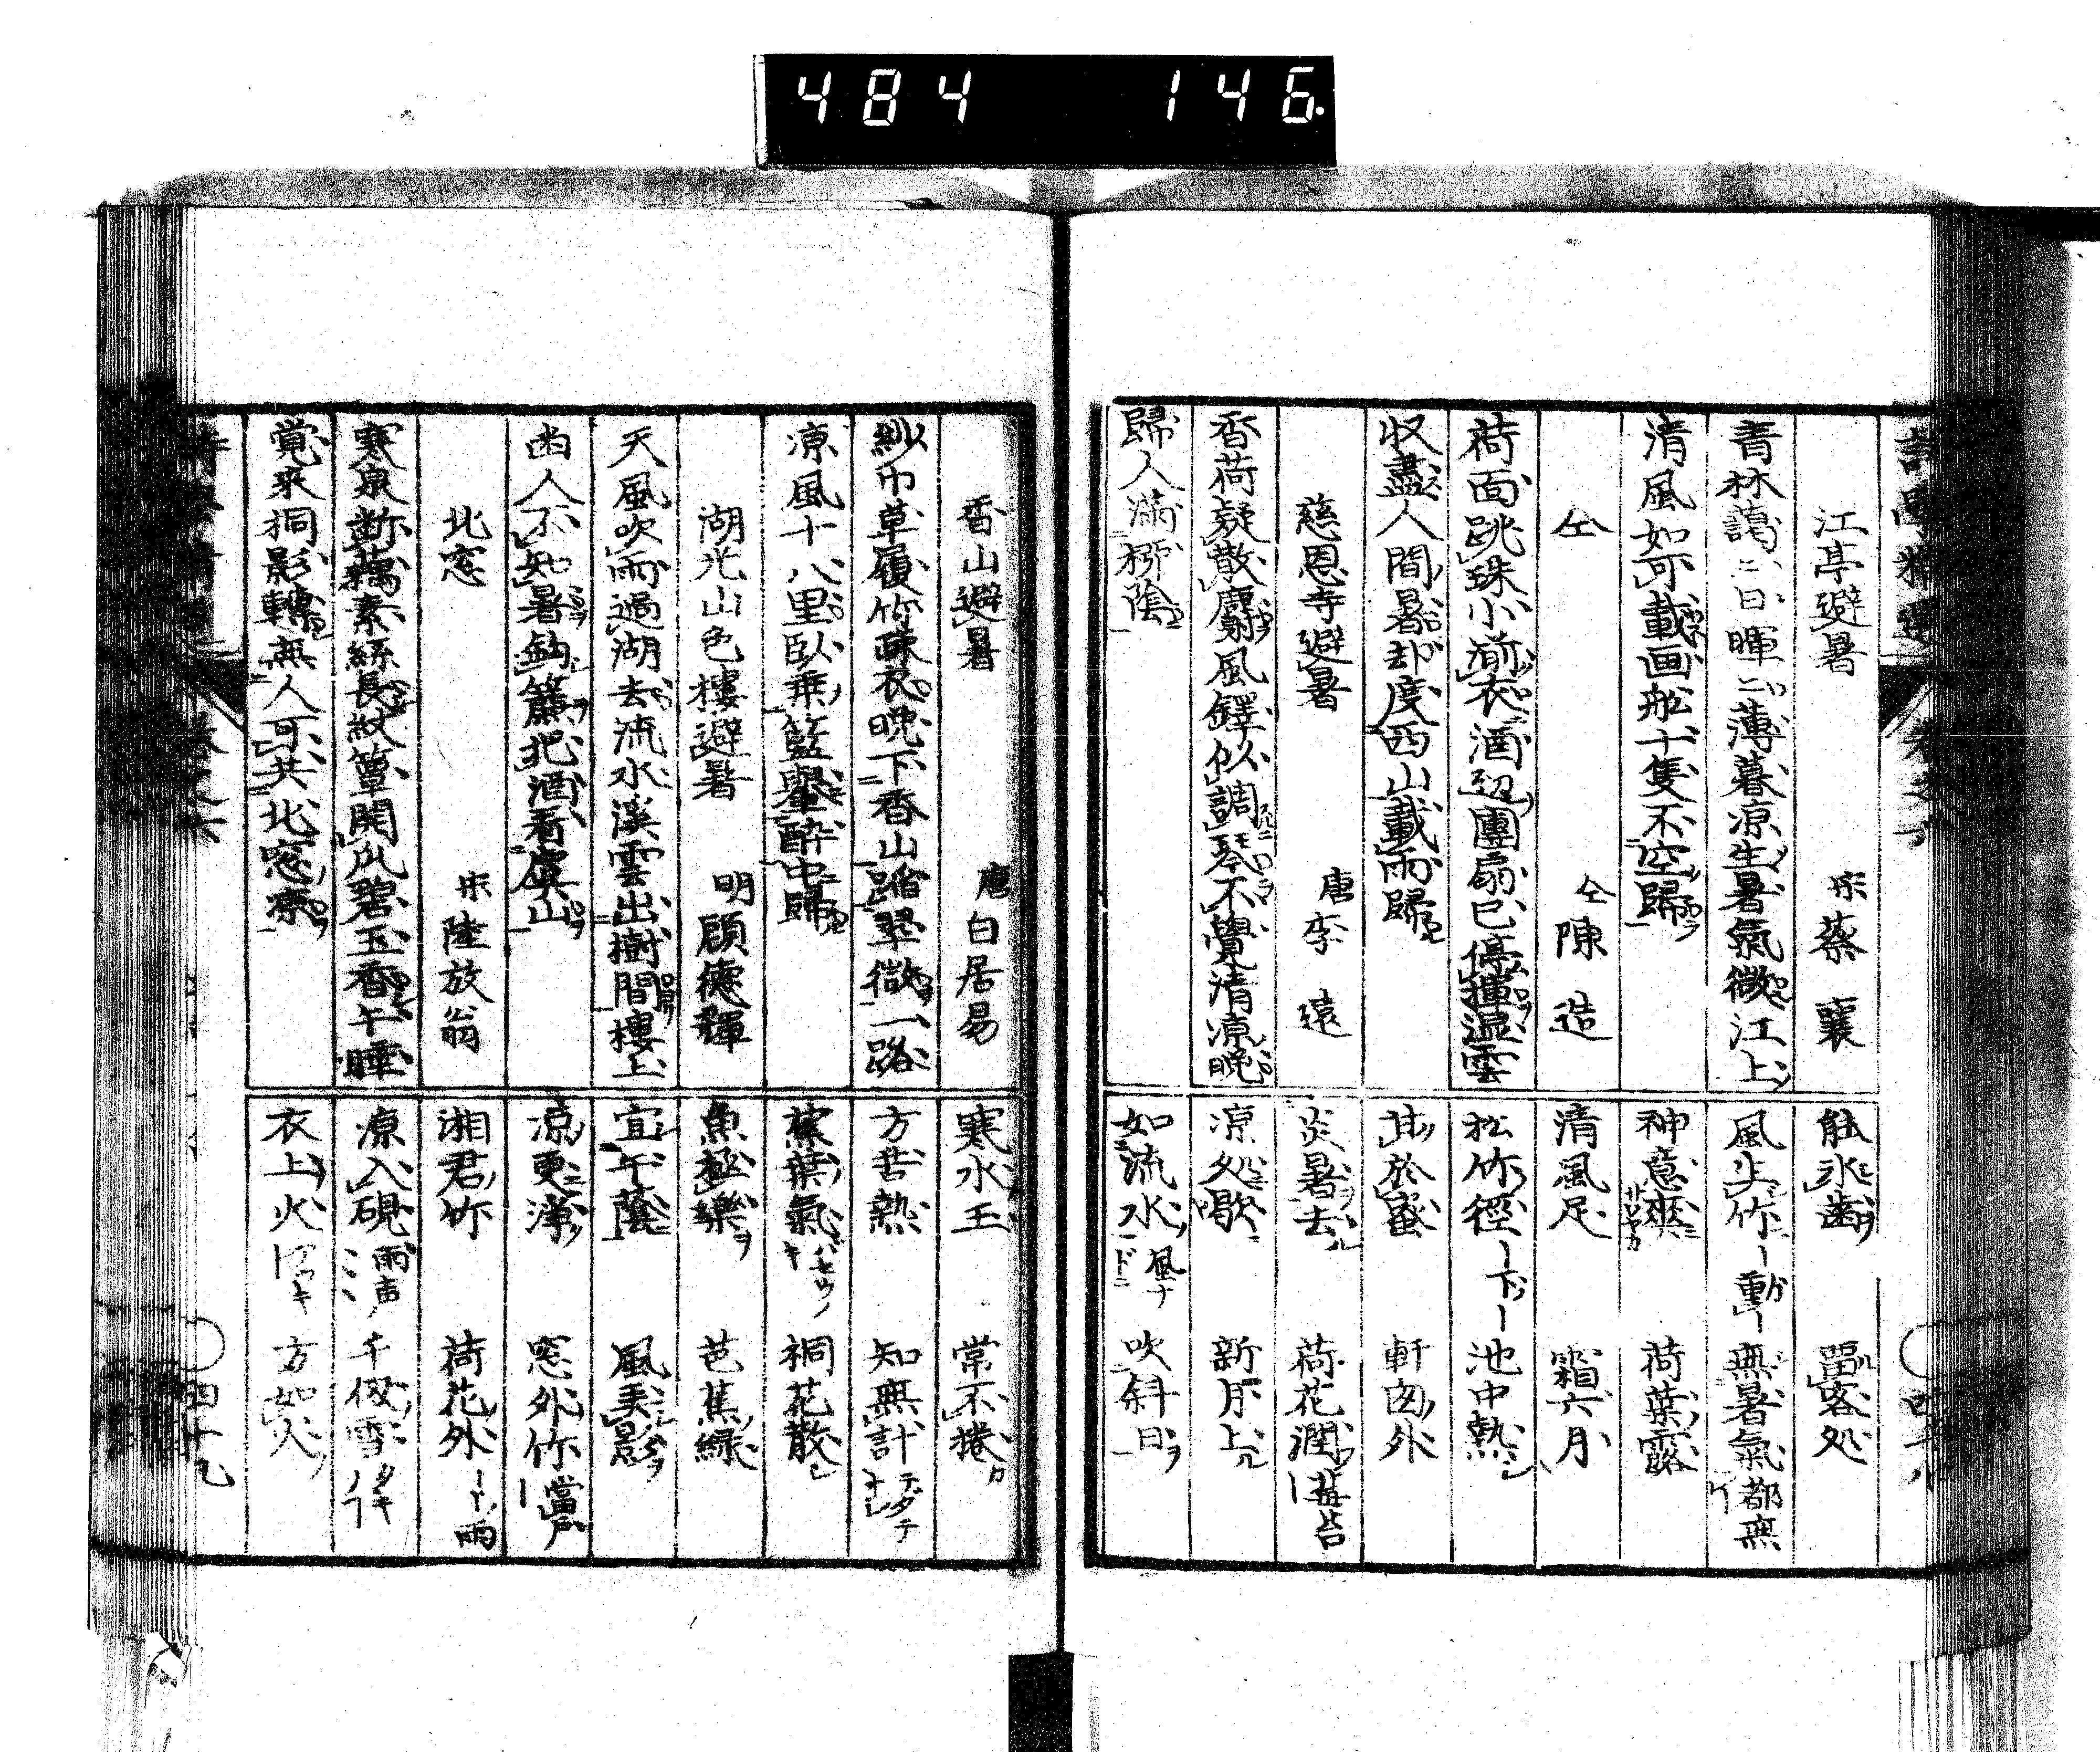 484 146.
江亭避暑 宋 蔡襄
青林靄〻日暉〻薄暮凉生暑氣微江上
清風如可載画舩十隻不空歸
仝 仝 陳造
荷面跳珠小湔衣酒辺團扇已停揮濕雲
収盡人間暑却度西山載雨歸
慈恩寺避暑 唐 李遠
香荷疑散麝風鐸似調琴不覺清凉晩
歸人滿栁陰
觝氷齒 畱客処
風生竹 動 無暑氣 都無
神意爽 荷葉露
清風足 霜六月
松竹徑 下 池中熱
甘於蜜 軒囱外
炎暑去 荷花潤 莓苔
凉処歇 新月上
如流水 風ナ 吹斜日
香山避暑 唐 白居易
紗巾草履竹疎衣晩下香山踏翠微一路
凉風十八里臥乗籃轝酔中歸
湖光山色樓避暑 明 顧德輝
天風吹雨過湖去流水溪雲出樹間樓上
幽人不知暑鉤簾把酒看虞山
北窓 宋 陸放翁
寒泉斷藕素絲長紋簟開瓜碧玉香午睡
覚来桐影轉無人可共北窓凉
寒水玉 常不捲
方苦熱 知無計 テダテナシ
蕉葉氣 バセウノキ 桐花散
魚極樂 芭蕉緑
宜午蔭 風美影
凉更深 窓外竹 當戸
湘君竹 荷花外 雨
凉入硯 雨声 千仭雪
衣上火 方如火
四十九